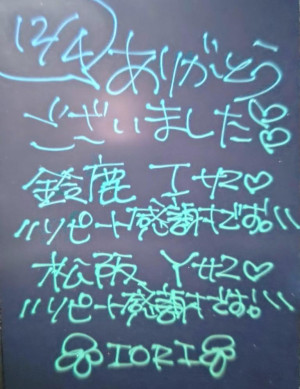 12/4 ありがとう
ございました♡
鈴鹿 Iサマ♡
"リピート感謝です。"
松阪 Yサマ♡
"リピート感謝です。"
IORI